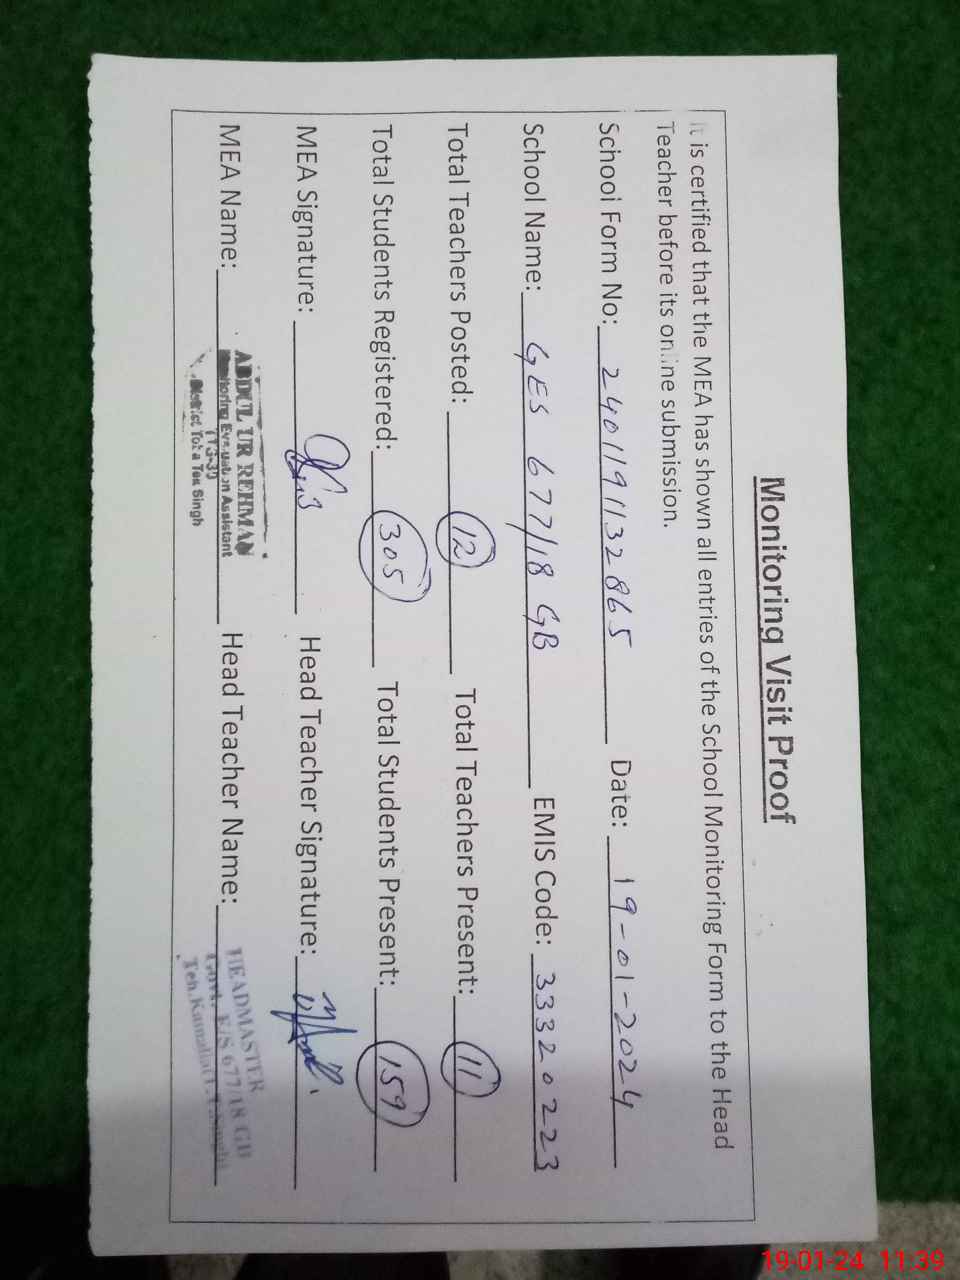 Monitoring Visit Proof
It is certified that the MEA has shown all entries of the School Monitoring Form to the Head
Teacher before its online submission.
School Form No: 2401191132865 Date: 19-01-2024
School Name: GES 677/18 GB EMIS Code: 33320223
Total Teachers Posted: 12 Total Teachers Present: 11
Total Students Registered: 305 Total Students Present: 159
MEA Signature: Head Teacher Signature:
MEA Name: Head Teacher Name:
ABDUL UR REHMAN
Monitoring Evaluation Assistant
District Toba Tek Singh
HEADMASTER
Govt. E/S 677/18 GB
Teh. Kamalia
19-01-24 11:39